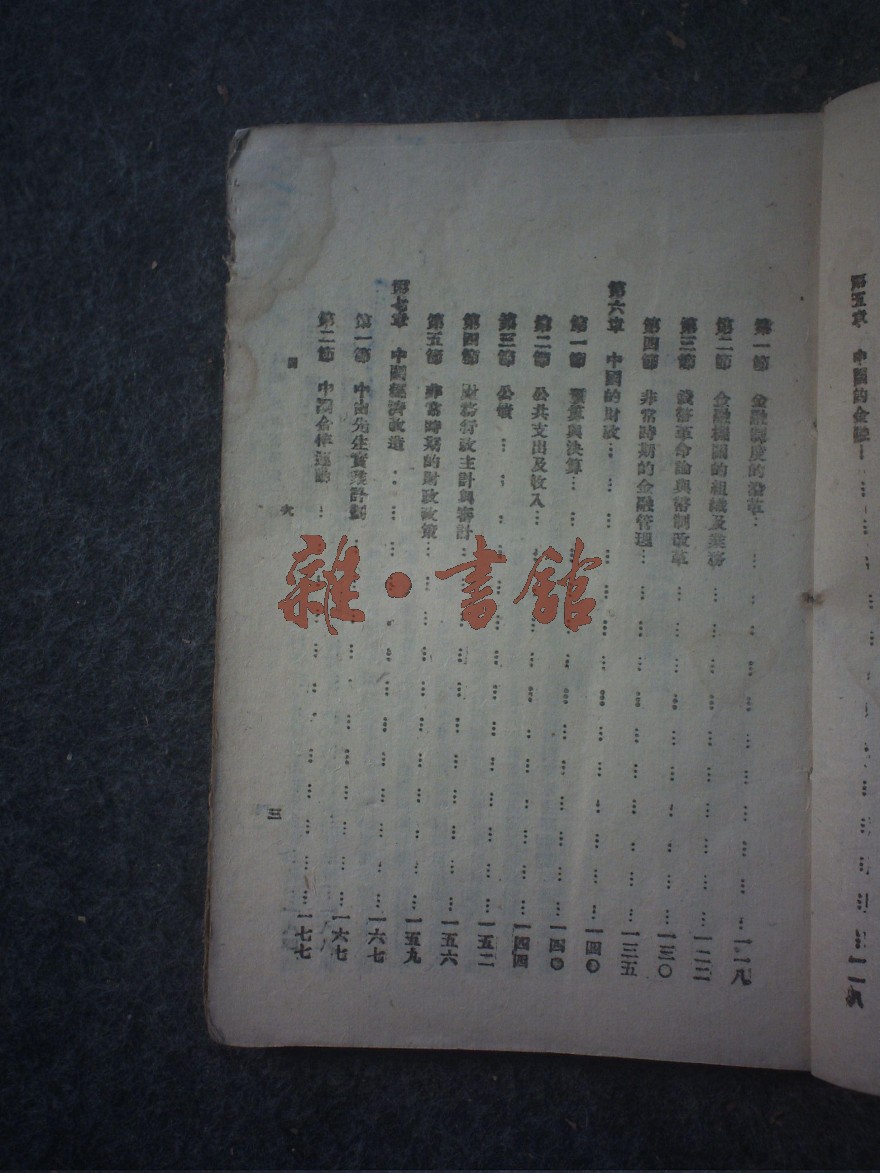 第五章 中國的金融………………一一八
第一節 金融制度的沿革………………一一八
第二節 金融機關的組織及業務………………一二二
第三節 錢幣革命論與幣制改革………………一三〇
第四節 非常時期的金融管理………………一三五
第六章 中國的財政………………一四〇
第一節 預算與決算………………一四〇
第二節 公共支出及收入………………一四四
第三節 公債………………一五二
第四節 財務行政主計與審計………………一五六
第五節 非常時期的財政政策………………一五九
第七章 中國經濟改造………………一六七
第一節 中山先生實業計劃………………一六七
第二節 中國合作運動………………一七七
目 次 三
雜·書館